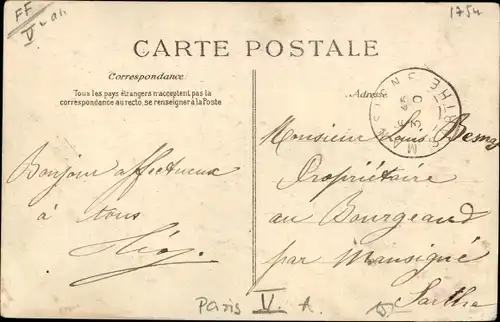 FF
V
1754
CARTE POSTALE
Correspondance
Tous les pays étrangers n'acceptent pas la
correspondance au recto, se renseigner à la Poste
Adresse
Bonjour affectueux
à tous
Monsieur Louis
Propriétaire
au Bourgeand
par Mansigné
Sarthe
Paris V A